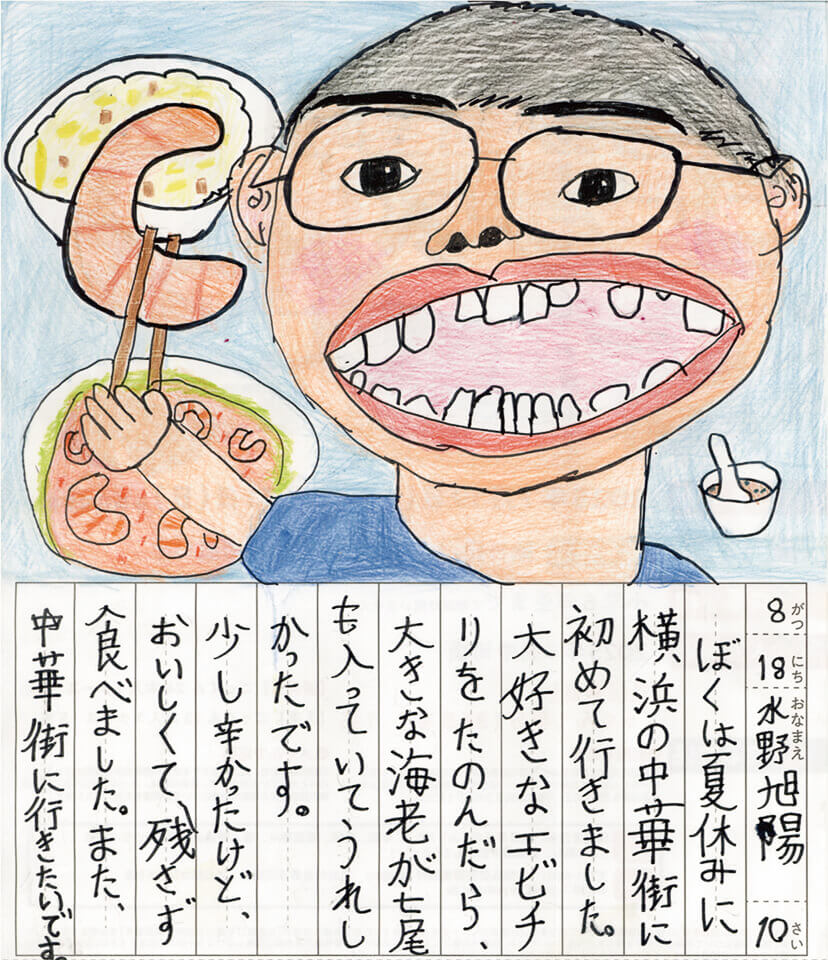 8がつ
18にち
おなまえ 水野旭陽
10さい
ぼくは夏休みに
横浜の中華街に
初めて行きました。
大好きなエビチ
リをたのんだら、
大きな海老が七尾
も入っていてうれし
かったです。
少し辛かったけど、
おいしくて、残さず
食べました。また、
中華街に行きたいです。